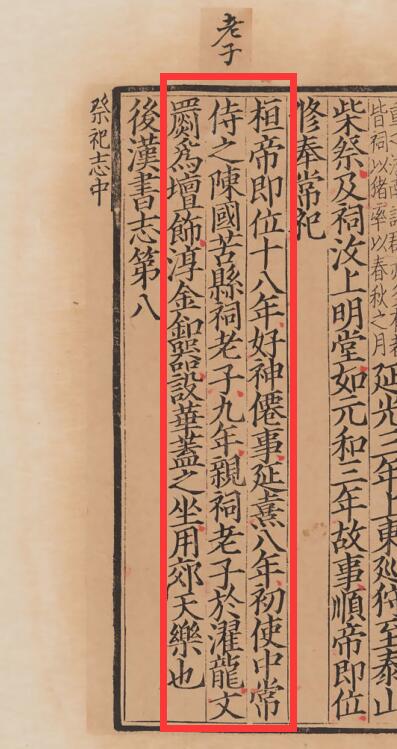 老子
皆祠以豬率以春秋之月
延光三年上東巡狩至泰山
柴祭及祠汶上明堂如元和三年故事順帝即位
修奉常祀
桓帝即位十八年好神僊事延熹八年初使中常
侍之陳國苦縣祠老子九年親祠老子於濯龍文
罽爲壇飾淳金釦器設華蓋之坐用郊天樂也
後漢書志第八
祭祀志中